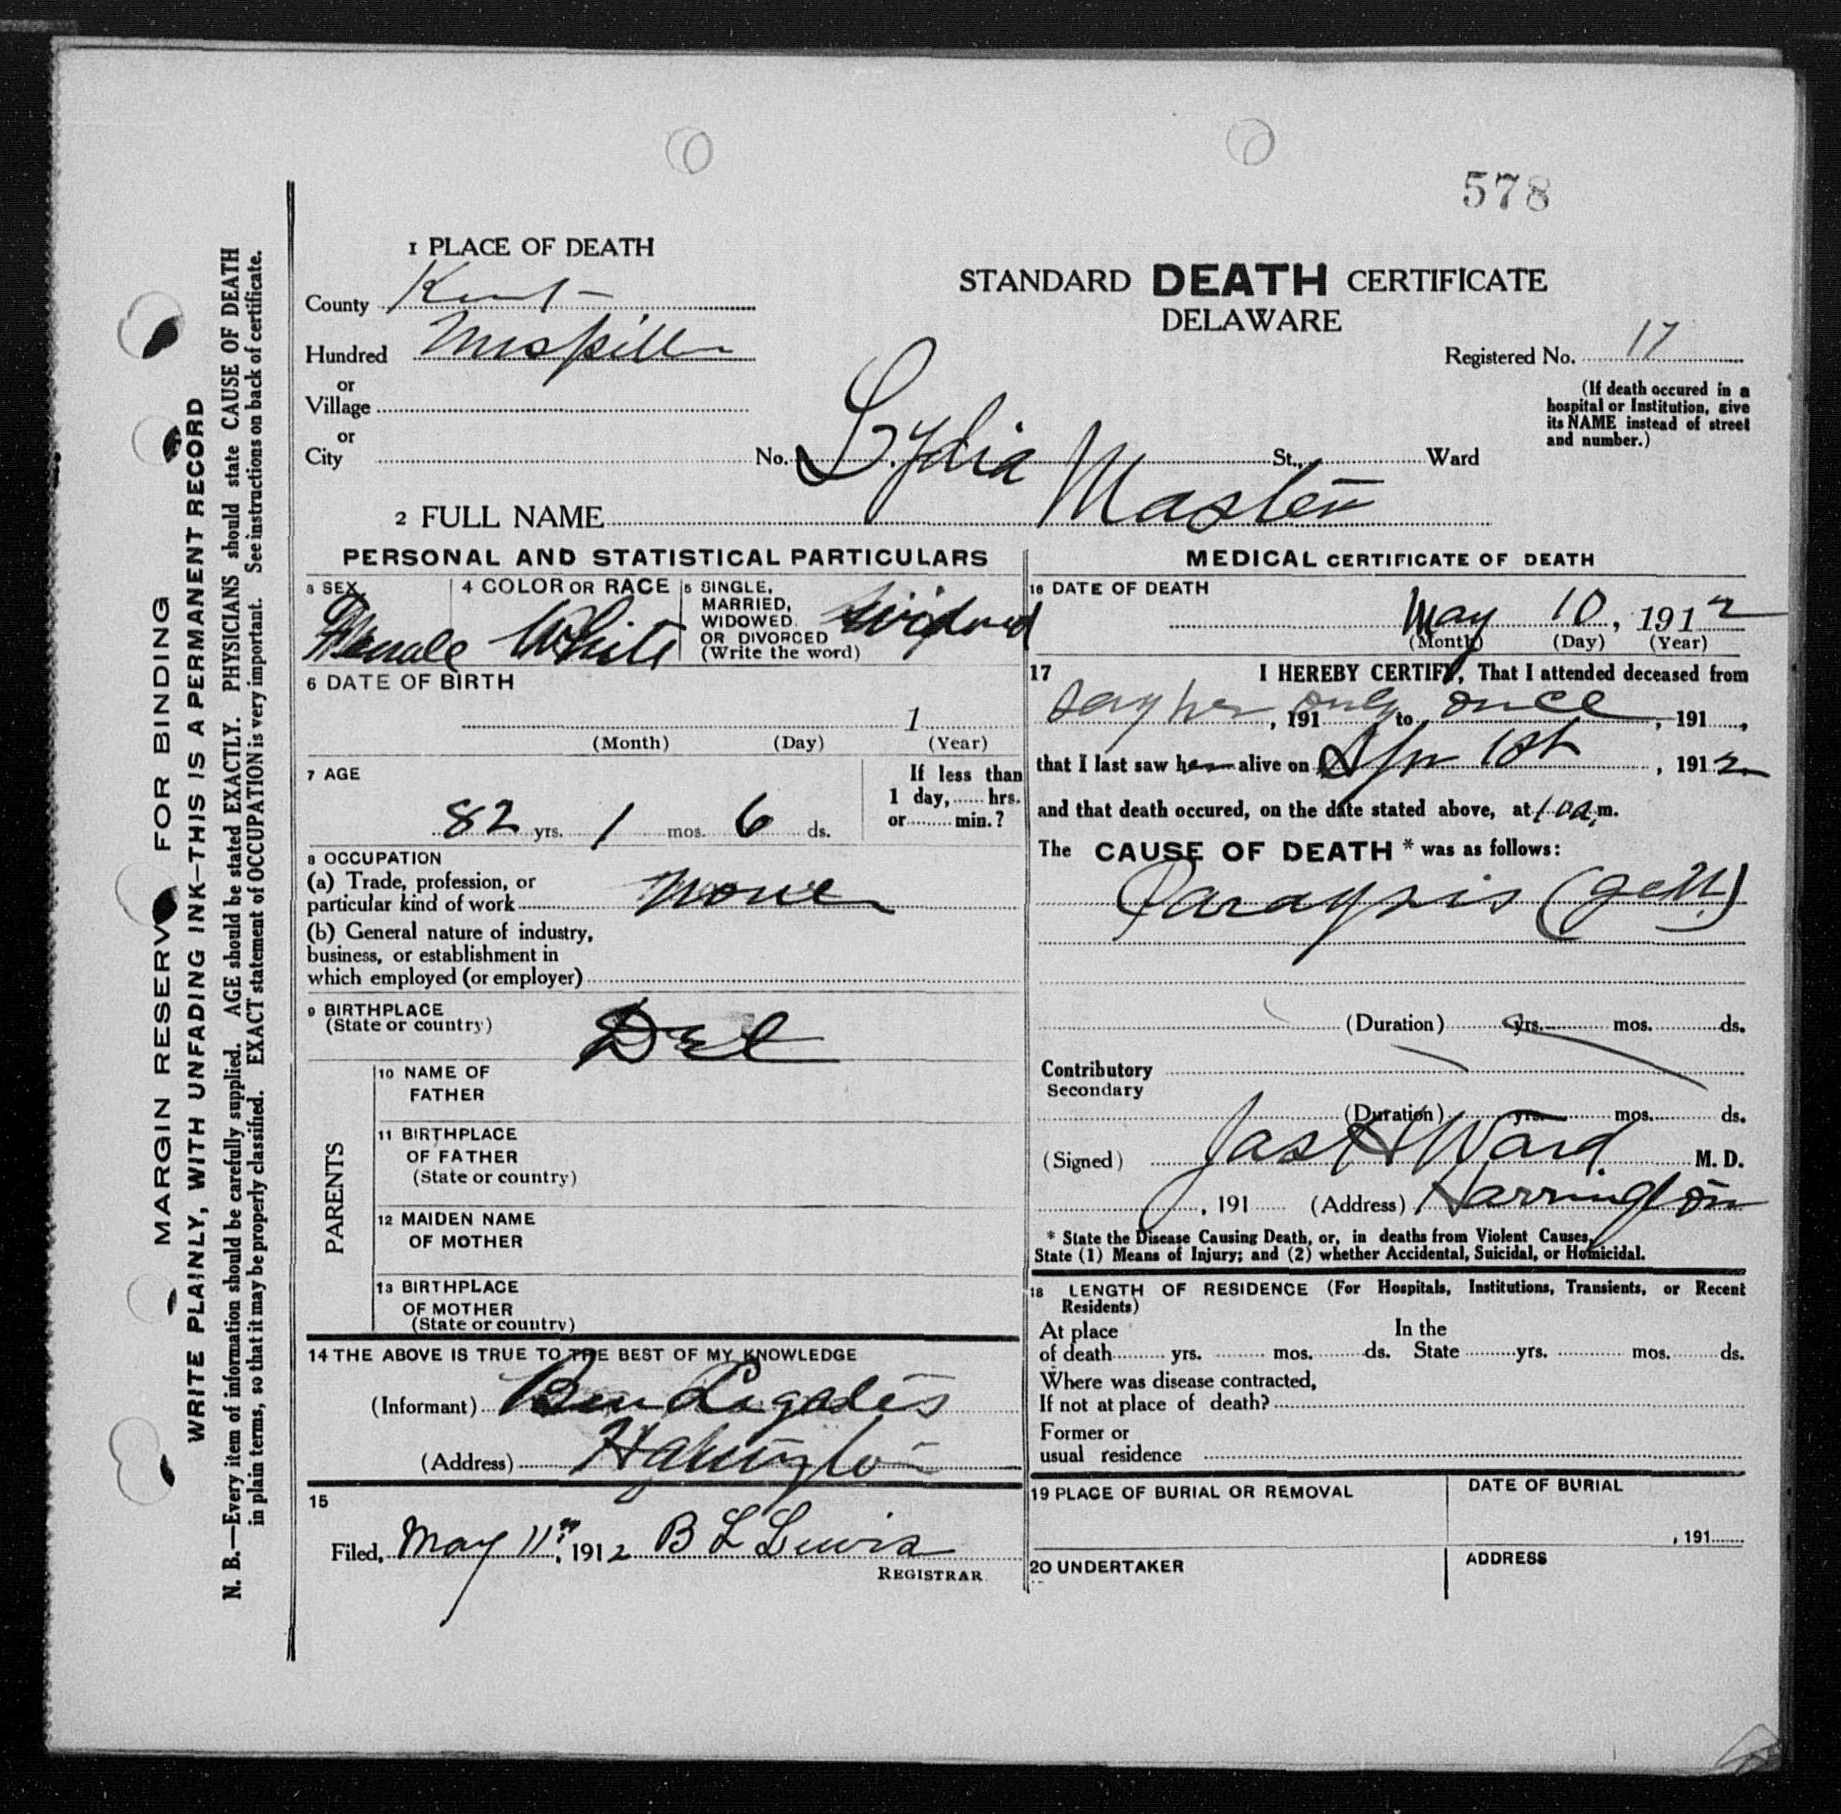 578
1 PLACE OF DEATH
County Kent
Hundred Mispillion
or
Village
or
City
STANDARD DEATH CERTIFICATE
DELAWARE
Registered No. 17
(If death occured in a
hospital or Institution, give
its NAME instead of street
and number.)
No. St., Ward
2 FULL NAME Lydia Masten
PERSONAL AND STATISTICAL PARTICULARS
3 SEX Female
4 COLOR OR RACE White
5 SINGLE,
MARRIED,
WIDOWED.
OR DIVORCED
(Write the word) Widowed
6 DATE OF BIRTH
1
(Month) (Day) (Year)
7 AGE
82 yrs. 1 mos. 6 ds.
If less than
1 day, hrs.
or min.?
8 OCCUPATION
(a) Trade, profession, or
particular kind of work None
(b) General nature of industry,
business, or establishment in
which employed (or employer)
9 BIRTHPLACE
(State or country) Del
PARENTS
10 NAME OF
FATHER
11 BIRTHPLACE
OF FATHER
(State or country)
12 MAIDEN NAME
OF MOTHER
13 BIRTHPLACE
OF MOTHER
(State or country)
14 THE ABOVE IS TRUE TO THE BEST OF MY KNOWLEDGE
(Informant) Ben
(Address) Harrington
15
Filed, May 11th, 1912 B L Lewis
REGISTRAR
MEDICAL CERTIFICATE OF DEATH
16 DATE OF DEATH
May 10, 1912
(Month) (Day) (Year)
17 I HEREBY CERTIFY, That I attended deceased from
her, 191 only to once, 191 ,
that I last saw her alive on Apr 1st, 1912
and that death occured, on the date stated above, at 10 a.m.
The CAUSE OF DEATH * was as follows:
Paraysis
(Duration) yrs. mos. ds.
Contributory
Secondary
(Duration) yrs. mos. ds.
(Signed) Jas H Ward. M. D.
, 191 (Address) Harrington
* State the Disease Causing Death, or, in deaths from Violent Causes,
State (1) Means of Injury; and (2) whether Accidental, Suicidal, or Homicidal.
18 LENGTH OF RESIDENCE (For Hospitals, Institutions, Transients, or Recent
Residents)
At place In the
of death yrs. mos. ds. State yrs. mos. ds.
Where was disease contracted,
If not at place of death?
Former or
usual residence
19 PLACE OF BURIAL OR REMOVAL
DATE OF BURIAL
, 191
20 UNDERTAKER
ADDRESS
MARGIN RESERVED FOR BINDING
WRITE PLAINLY, WITH UNFADING INK—THIS IS A PERMANENT RECORD
N. B.—Every item of information should be carefully supplied. AGE should be stated EXACTLY. PHYSICIANS should state CAUSE OF DEATH
in plain terms, so that it may be properly classified. EXACT statement of OCCUPATION is very important. See instructions on back of certificate.